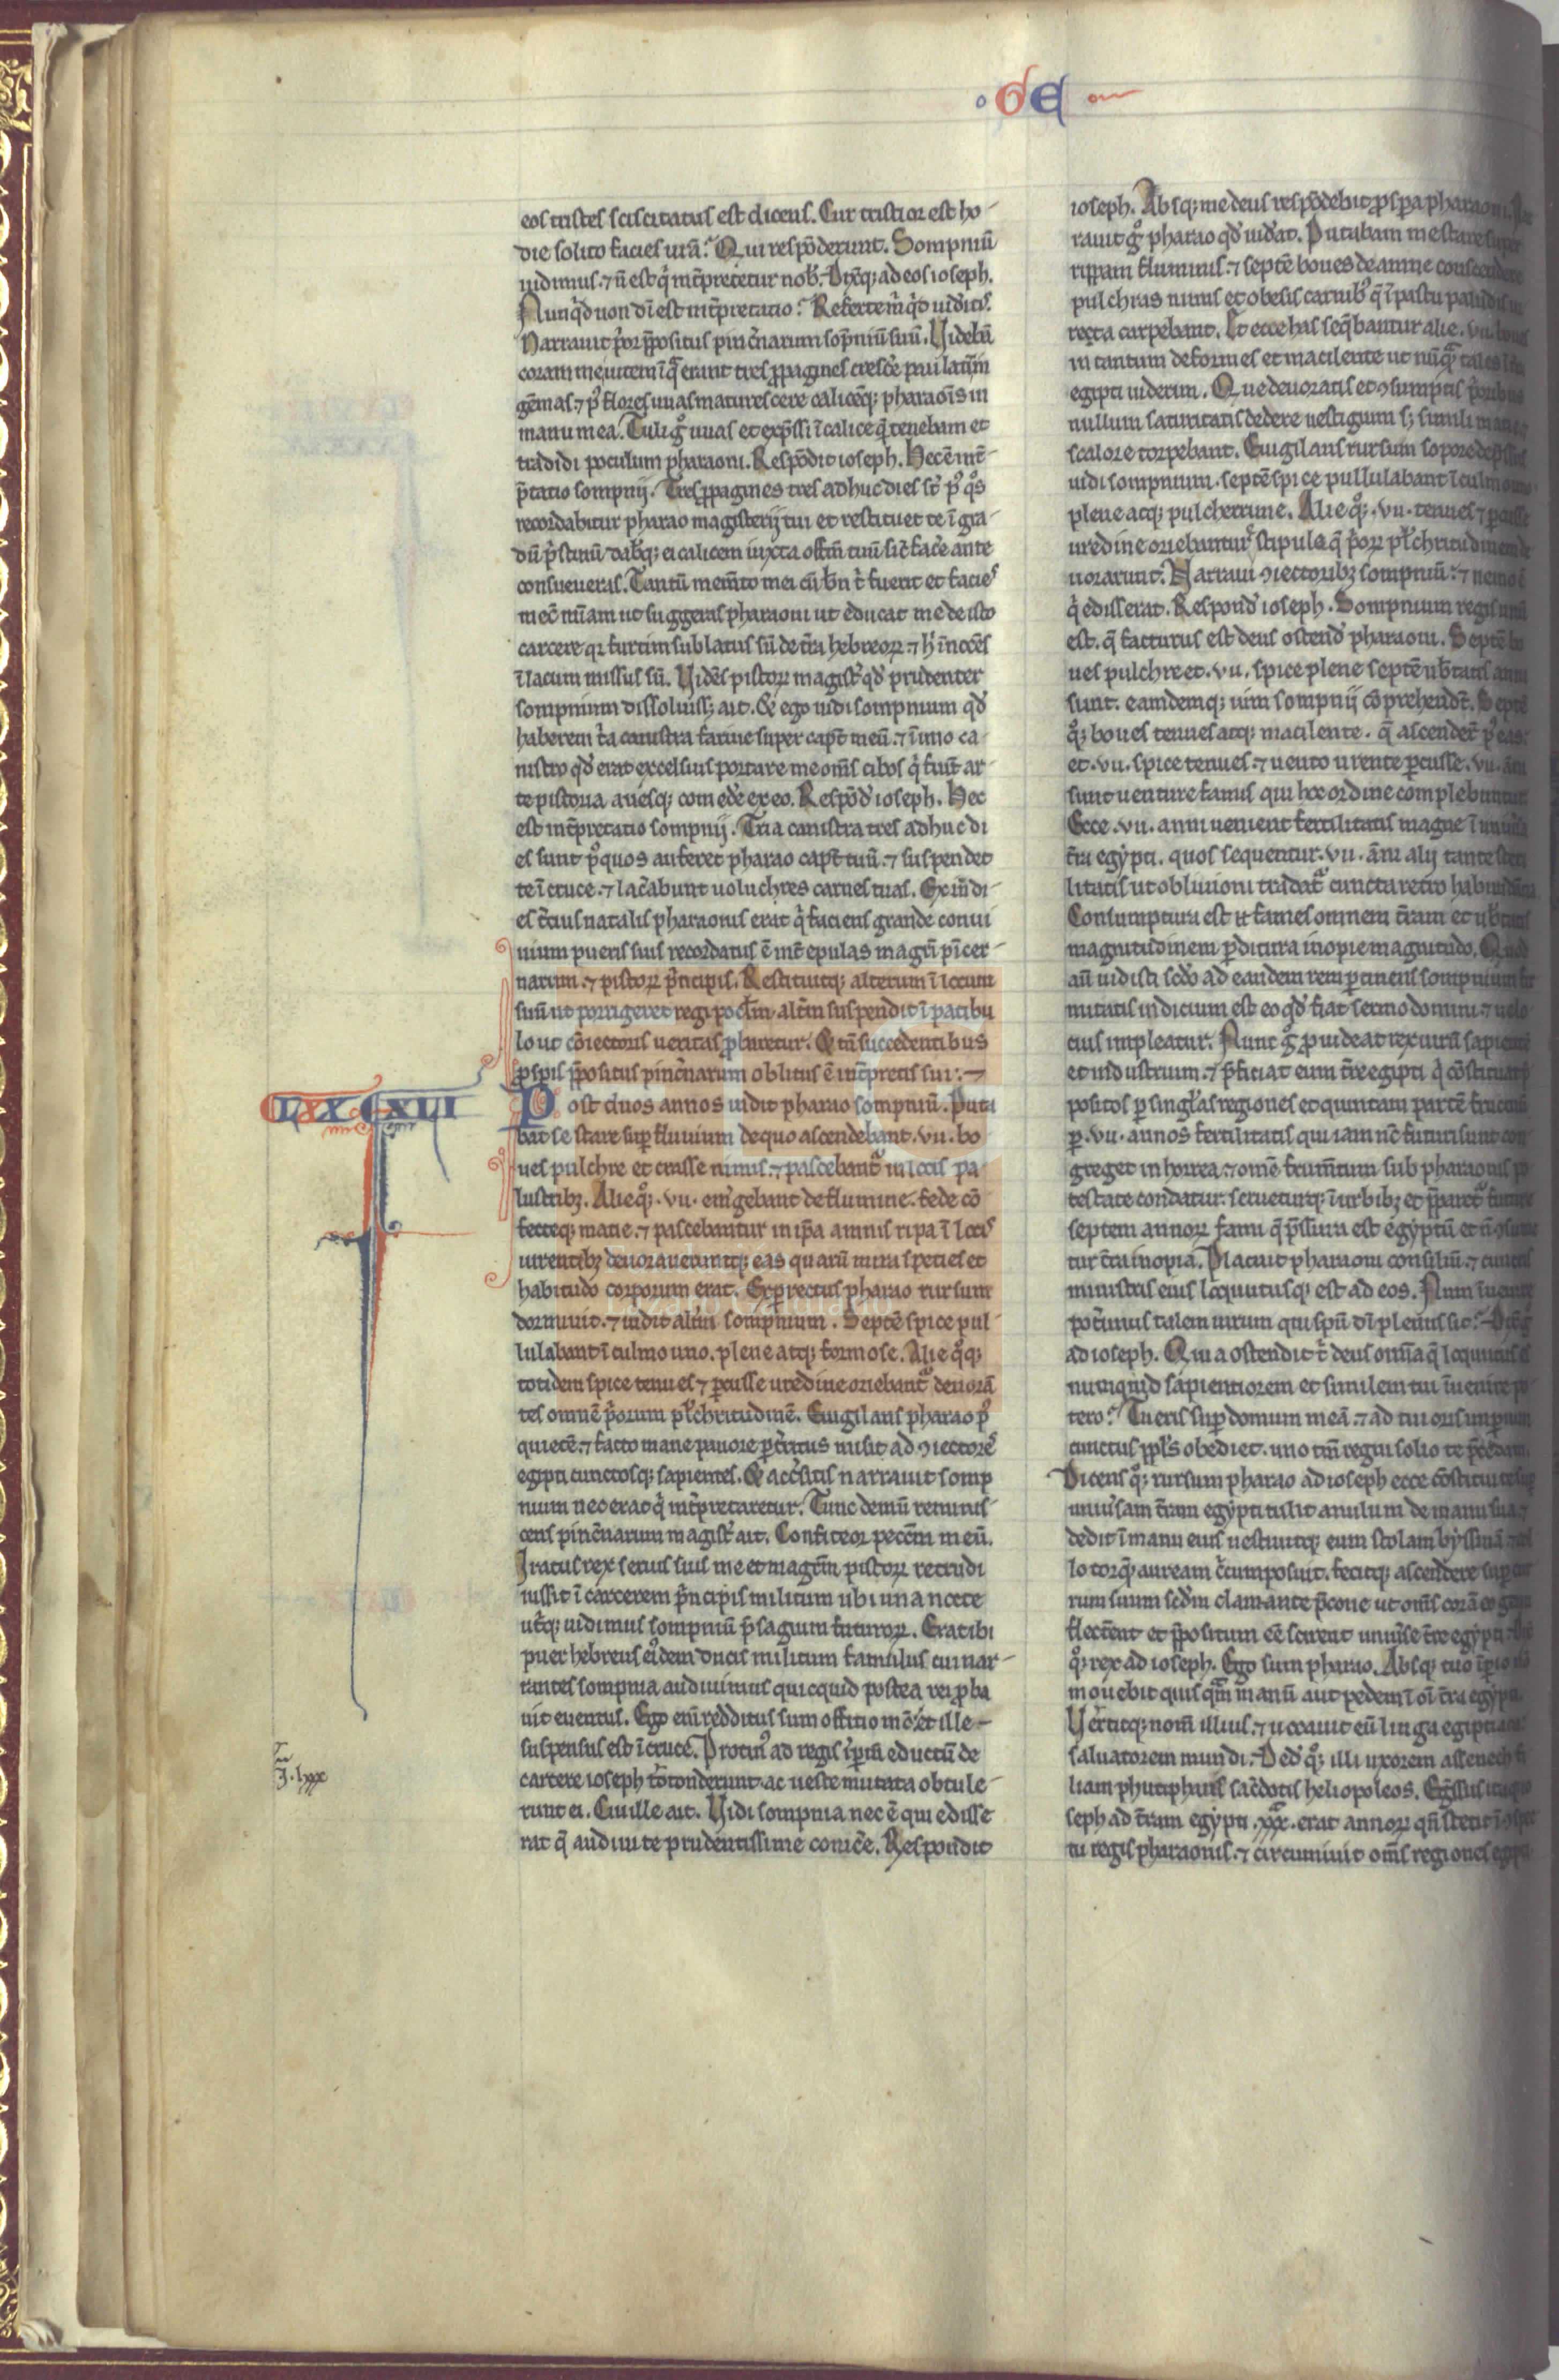 GE
eos tristes sciscitatus est dicens. Cur tristior est ho-
die solito facies urã? Qui respõderunt. Sompniũ
uidimus. ⁊ ñ est q̇ int̃pretetur nob̃. Dix̃q; ad eos ioseph.
Nunq̇d non dĩ est int̃pretatio? Referte m̃ q̇d uid̃itis.
Narrauit p̃or p̃positus pinc̃narum sop̃niũ suũ. Uidebã
coram me uitem ĩ q̃ erant tres ꝓpagines cresc̃e paulatim
gẽmas. ⁊ pꝰ flores uuas maturescere calicẽq; pharaõis in
manu mea. Tuli gͦ uuas et exp̃ssi ĩ calice q̃ tenebam et
tradidi poculum pharaoni. Respõdit ioseph. Hec ẽ int̃-
p̃tatio sompnij. Tres ꝓpagines tres adhuc dies st̃ pꝰ qͦs
recordabitur pharao magisterij tui et restituet te ĩ gra-
dũ p̃stinũ dab̃q; ei calicem iuxta offm̃ tuũ sic̃ fac̃e ante
consueueras. Tantũ mem̃to mei cũ b̃n t̃ fuerit et facies
mec̃ m̃iam ut suggeras pharaoni ut educat me de isto
carcere qꝛ furtim sublatus sũ de t̃ra hebreoꝝ ⁊ h̃ ĩnocẽs
ĩ lacum missus sũ. Uidẽs pistoꝝ magist̃ qd̃ prudenter
sompnium dissoluiss; ait. Et ego uidi sompnium qd̃
haberem t̃a canistra farine super cap̃t meũ. ⁊ ĩ uno ca-
nistro qd̃ erat excelsius portare me om̃s cibos q̇ fiũt ar-
te pistoria auesq; comed̃e ex eo. Respõd̃ ioseph. Hec
est int̃pretatio sompnij. Tria canistra tres adhuc di
es sunt pꝰ quos auferet pharao cap̃t tuũ. ⁊ suspendet
te ĩ cruce. ⁊ lac̃abunt uoluchres carnes tuas. Exin̄ di-
es t̃cius natalis pharaonis erat q̇ faciens grande conui
uium pueris suis recordatus ẽ int̃ epulas magr̃i pĩcer-
narum. ⁊ pistoꝝ p̃ncipis. Restituitq; alterum ĩ locum
suũ ut porrigeret regi pocl̃m alt̃m suspendit ĩ patibu
lo ut cõiectoris ueritas ꝓbaretur. Et tñ succedentibus
ꝓspis p̃positus pinc̃narum oblitus ẽ int̃pretis sui.
LXX CXLI
Post duos annos uidit pharao sompniũ. Puta
bat se stare sup̃ fluuium de quo ascendebant .vii. bo
ues pulchre et crasse nimis. ⁊ pascebant̃ in locis pa-
lustribꝫ. Alie qͦ; .vii. em̃gebant de flumine. fede cõ
fecteq; macie. ⁊ pascebantur in ip̃a amnis ripa ĩ locis
uirentibꝫ deuoraueruntq; eas quarũ mira species et
habitudo corporum erat. Exp̱rectus pharao rursum
dormiuit. ⁊ uidit alt̃m sompnium. Septẽ spice pul-
lulabant ĩ culmo uno. plene atq; formose. Alie qͦq;
totidem spice tenues ⁊ p̱cusse uredine oriebant̃ deuorã
tes omnẽ p̃orum pl̃chritudinẽ. Euigilans pharao pꝰ
quietẽ. ⁊ facto mane pauore p̱t̃ritus misit ad ꝯiectores
egipti cunctosq; sapientes. Et acc̃sitis narrauit somp
nium nec erat q̇ int̃pretaretur. Tunc demũ reminis-
cens pinc̃narum magist̃ ait. Confiteor pecc̃m meũ.
Iratus rex seruis suis me et magr̃m pistoꝝ retrudi
iussit ĩ carcerem p̃ncipis militum ubi una nocte
ut̃q; uidimus sompniũ p̃sagium futuroꝝ. Erat ibi
puer hebreus eĩdem ducis militum famulus cui nar-
rantes sompnia audiuimus quicquid postea rei ꝓba
uit euentus. Ego em̃ redditus sum offitio mõ. et ille-
suspensus est ĩ cruce. Protinꝰ ad regis ĩp̱iũ eductũ de
I. lxx
carcere ioseph tõtonderunt. ac ueste mutata obtule-
runt ei. Cui ille ait. Uidi sompnia nec ẽ qui edisse
rat q̃ audiui te prudentissime conic̃e. Respondit
ioseph. Absq; me deus respõdebit ꝓspa pharaoni.
rauit gͦ pharao qd̃ uid̃at. Putabam me stare super
rippam fluminis. ⁊ septẽ boues de amne conscendere
pulchras nimis et obesis carnibꝰ q̃ ĩ pastu paludis
recta carpebant. Et ecce has seq̃bantur alie .vii. boues
in tantum deformes et macilente ut nũq̃ tales
egipti uiderim. Que deuoratis et ꝯsumptis p̃oribus
nullum saturitatis dedere uestigium sꝫ simili
scalore torpebant. Euigilans rursum sopore
uidi sompnium. septẽ spice pullulabant ĩ culmo
plene atq; pulcherrime. Alie qͦ; .vii. tenues ⁊ p̱cusse
uredine oriebantur stipula q̃ p̃orꝝ pl̃chritudinem de
uorarunt. Narraui ꝯiectoribꝫ sompniũ. ⁊ nemo ẽ
q̇ edisserat. Respond̃ ioseph. Sompnium regis unũ
est. q̃ facturus est deus ostend̃ pharaoni. Septẽ bo
ues pulchre et .vii. spice plene septẽ ub̃tatis anni
sunt. eamdemq; uim sompnij cõprehendt̃. Septẽ
qͦ; boues tenues atq; macilente. q̃ ascender̃t pꝰ eas.
et .vii. spice tenues. ⁊ uento urente p̱cusse .vii. ãni
sunt uenture famis qui hoc ordine complebuntur.
Ecce .vii. anni uenient fertilitatis magne ĩ
t̃ra egypti. quos sequentur .vii. ãni alij tante steri
litatis ut obliuioni tradat̃ cuncta retro
Consumptura est ei fames omnem t̃ram et ub̃tatis
magnitudinem p̱ditura inopie magnitudo. Quod
aũ uidisti scd̃o ad eandem rem p̱tinens sompnium
mitatis indicium est eo qd̃ fiat sermo domini. ⁊ uelo
cius impleatur. Nunc gͦ ꝓuideat rex uirũ sapientẽ
et industrium. ⁊ p̃ficiat eum t̃re egipti q̇ cõstituat
positos p̱ singl̃as regiones et quintam partẽ fructuũ
p̱ .vii. annos fertilitatis qui iam nc̃ futuri sunt con
greget in horrea. ⁊ omẽ frum̃tum sub pharaonis po
testate condatur. serueturq; ĩ urbibꝫ et p̃paret̃ future
septem annoꝝ fami q̃ p̃ssura est egyptũ et ñ
tur t̃ra inopia. Placuit pharaoni consiliũ. ⁊ cunctis
ministris eius locqutusq; est ad eos. Num ĩuenire
pot̃imus talem uirum qui spũ dĩ plenus sit?
ad ioseph. Quia ostendit t̃ deus omĩa q̃ locqutus es
numquid sapientiorem et similem tui ĩuenire po
tero? Tu eris sup̱ domum meã. ⁊ ad tui oris imp̱ium
cunctus ppl̃s obediet. uno tm̃ regni solio te p̃cedam.
Dicens qͦ; rursum pharao ad ioseph ecce cõstitui te
uniũsam t̃ram egypti tulit anulum de manu sua.
dedit ĩ manu eius uestiuitq; eum stola byssina
lo torq̃ auream c̃cumposuit. fecitq; ascendere sup̱
rum suum scd̃m clamante p̃cone ut om̃s corã eo genu
flect̃ent et p̃positum eẽ scirent uniũse t̃re egypti.
qͦ; rex ad ioseph. Ego sum pharao. Absq; tuo ĩp̱io
mouebit quis q̃m manũ aut pedem ĩ oĩ t̃ra egypti.
Uertitq; nom̃ illius. ⁊ uocauit eũ linga egiptiaca
saluatorem mundi. Ded̃ qͦ; illi uxorem asseneth fi
liam phutipharis sac̃dotis heliopoleos. Egr̃ssus
seph ad t̃ram egypti .xxx. erat annoꝝ qñ stetit ĩ
tu regis pharaonis. ⁊ circumiuit om̃s regiones egypti